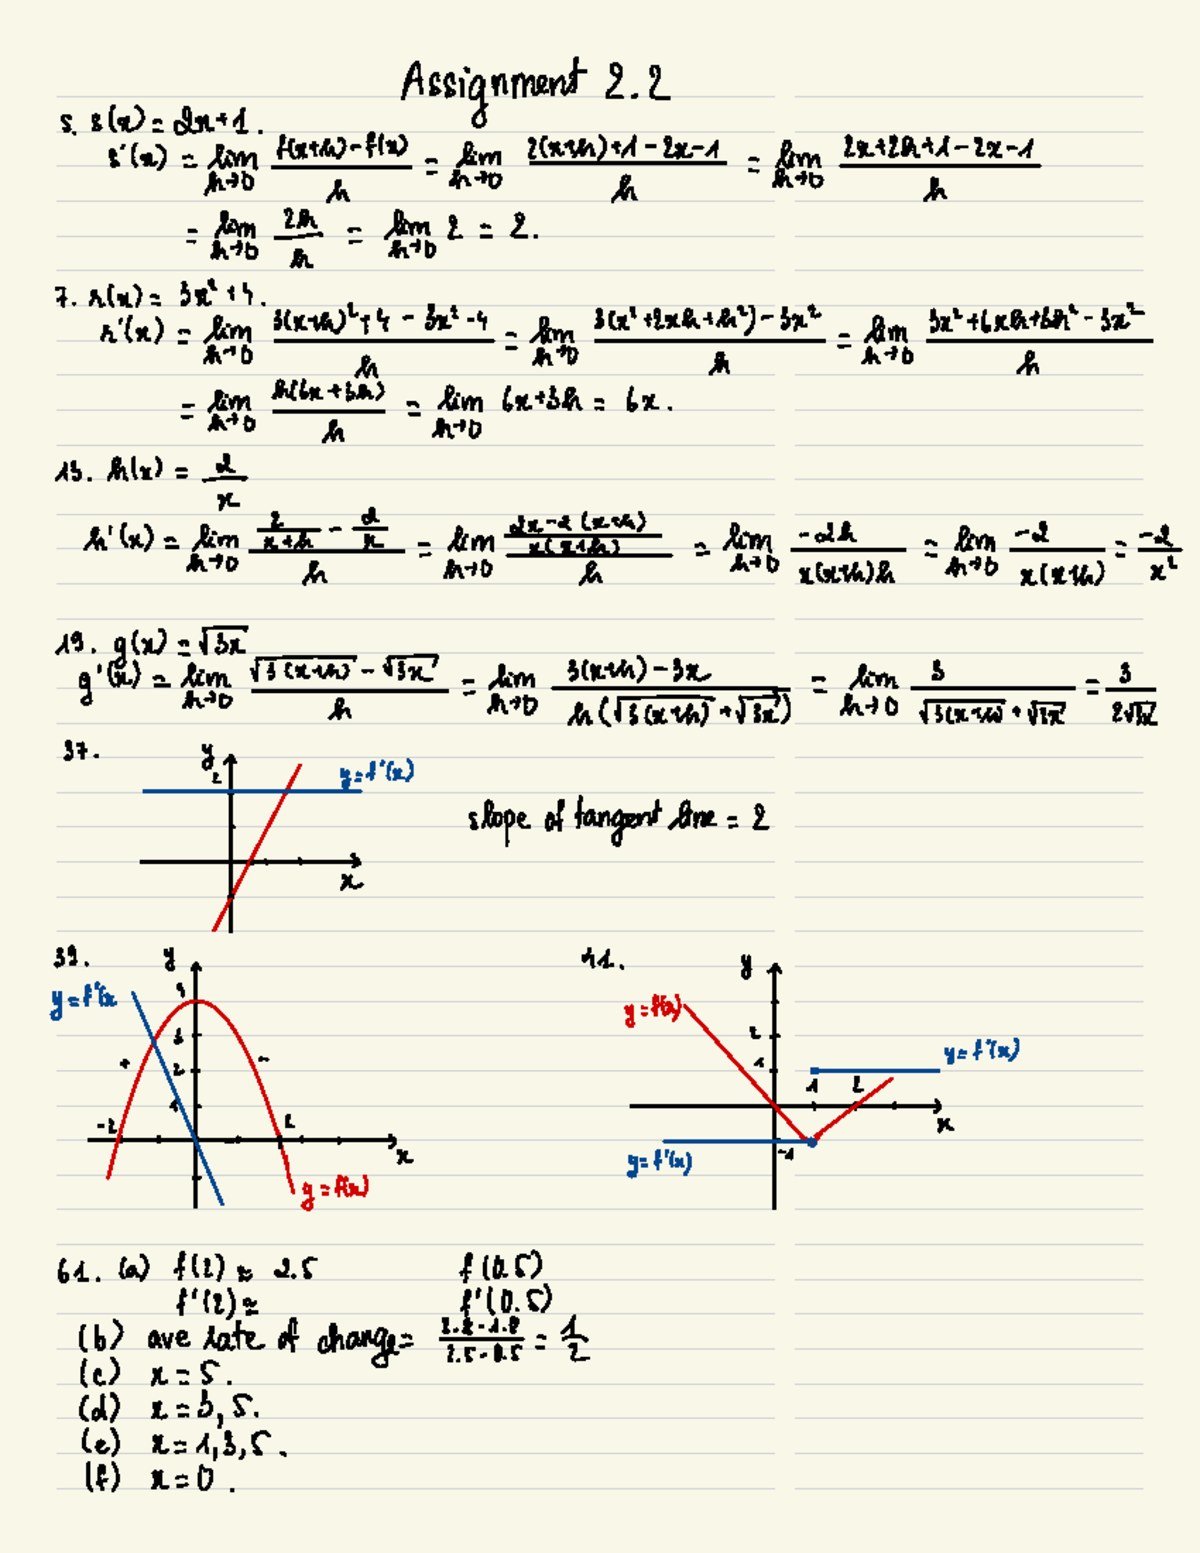 Assignment 2.2
5. s(x) = 2x+1.
s'(x) = lim h→0 f(x+h)-f(x) / h = lim h→0 2(x+h)+1-2x-1 / h = lim h→0 2x+2h+1-2x-1 / h
= lim h→0 2h / h = lim h→0 2 = 2.
7. r(x) = 3x² + 4.
r'(x) = lim h→0 3(x+h)²+4 - 3x² - 4 / h = lim h→0 3(x²+2xh+h²) - 3x² / h = lim h→0 3x²+6xh+3h² - 3x² / h
= lim h→0 h(6x+3h) / h = lim h→0 6x+3h = 6x.
13. h(x) = 2 / x
h'(x) = lim h→0 (2 / x+h - 2 / x) / h = lim h→0 (2x-2(x+h) / x(x+h)) / h = lim h→0 -2h / x(x+h)h = lim h→0 -2 / x(x+h) = -2 / x²
19. g(x) = √3x
g'(x) = lim h→0 √3(x+h) - √3x / h = lim h→0 3(x+h) - 3x / h(√3(x+h) + √3x) = lim h→0 3 / √3(x+h) + √3x = 3 / 2√3x
37.
y
2
y=f'(x)
x
slope of tangent line = 2
39.
y
y=f'(x
4
3
2
1
+
-
-2
2
x
y=f(x)
41.
y
y=f(x)
2
1
y=f'(x)
1 2
x
-1
y=f'(x)
61. (a) f(2) ≈ 2.5 f(0.5)
f'(2) ≈ f'(0.5)
(b) ave rate of change = / 2.5-0.5 = 1 / 2
(c) x = 5.
(d) x = 3, 5.
(e) x = 1, 3, 5.
(f) x = 0.